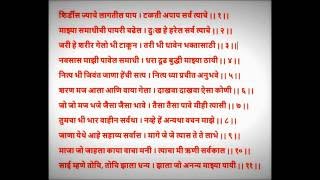 शिर्डीस ज्याचे लागतील पाय । टळती अपाय सर्व त्याचे ।। १ ।।
माझ्या समाधीची पायरी चढेल । दुःख हे हरेल सर्व त्याचे ।। २ ।।
जरी हे शरीर गेलो मी टाकून । तरी मी धावेन भक्तासाठी ।। ३ ।।
नवसास माझी पावेल समाधी । धरा दृढ बुद्धी माझ्या ठायी ।। ४ ।।
नित्य मी जिवंत जाणा हेंची सत्य । नित्य घ्या प्रचीत अनुभवे ।। ५ ।।
शरण मज आला आणि वाया गेला । दाखवा दाखवा ऐसा कोणी ।। ६ ।।
जो जो मज भजे जैशा जैशा भावे । तैसा तैसा पावे मीही त्यासी ।। ७ ।।
तुमचा मी भार वाहीन सर्वथा । नव्हे हें अन्यथा वचन माझे ।। ८ ।।
जाणा येथे आहे सहाय्य सर्वांस । मागे जे जे त्यास ते ते लाभे ।। ९ ।।
माझा जो जाहला काया वाचा मनी । त्याचा मी ऋणी सर्वकाल ।। १० ।।
साई म्हणे तोचि, तोचि झाला धन्य । झाला जो अनन्य माझ्या पायी ।। ११ ।।